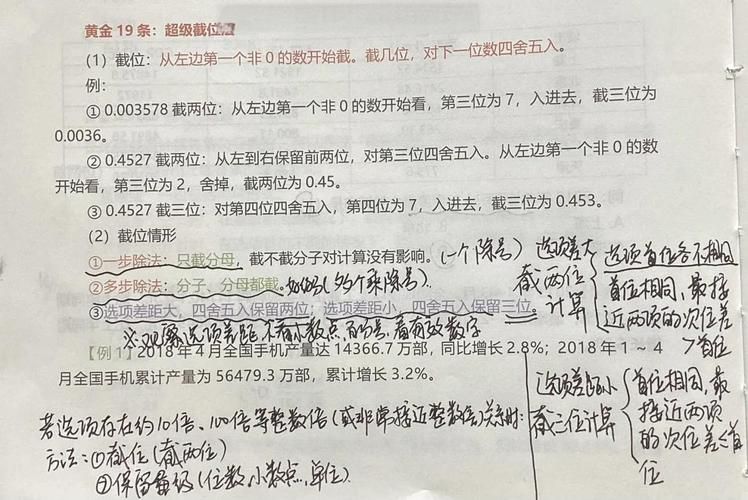 黄金 19 条：超级截位
（1）截位：从左边第一个非 0 的数开始截。截几位，对下一位数四舍五入。
例：
① 0.003578 截两位：从左边第一个非 0 的数开始看，第三位为 7，入进去，截三位为
0.0036。
② 0.4527 截两位：从左到右保留前两位，对第三位四舍五入。从左边第一个非 0 的数
开始看，第三位为 2，舍掉，截两位为 0.45。
③ 0.4527 截三位：对第四位四舍五入，第四位为 7，入进去，截三位为 0.453。
（2）截位情形
①一步除法：只截分母，截不截分子对计算没有影响。(一个除号)
②多步除法：分子、分母都截。(多个乘除号)
③选项差距大，四舍五入保留两位；选项差距小，四舍五入保留三位。
※观察选项差距，不看小数点、百分号，看有效数字
【例 1】2018 年 4 月全国手机产量达 14366.7 万部，同比增长 2.8%；2018 年 1 ~ 4
月全国手机累计产量为 56479.3 万部，累计增长 3.2%。
选项差大
截两位
计算
选项首位各不相同
首位相同，最接
近两项的次位差
>首位
选项差距小
截三位计算
首位相同，最
接近两项
的次位差≤首
位
若选项存在约10倍、100倍等整数倍(或非常接近整数倍)关系时:
方法:①截位(截两位)
②保留量级(位数,小数点,单位)